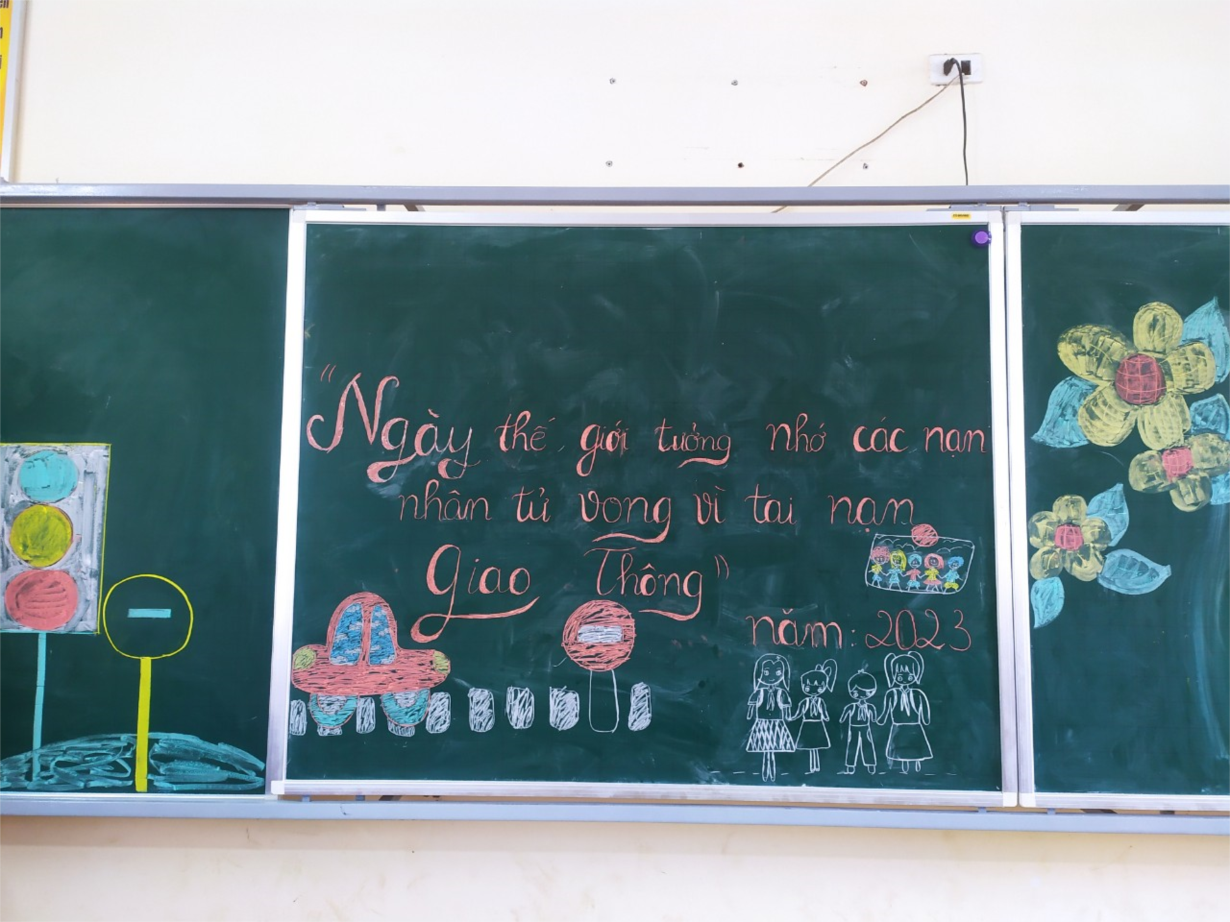 "Ngày thế giới tưởng nhớ các nạn
nhân tử vong vì tai nạn
Giao Thông"
năm: 2023